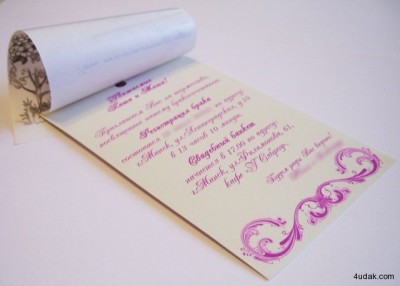 Уважаемые
Паша и Маша!
Приглашаем Вас на торжество,
посвященное нашему бракосочетанию.
Регистрация брака
состоится по адресу:
г. Минск, ул.
в 13 часов 10 минут.
Свадебный банкет
начнется в 17.00 по адресу:
г. Минск, ул. 61,
кафе
Будем рады Вас видеть!
4udak.com